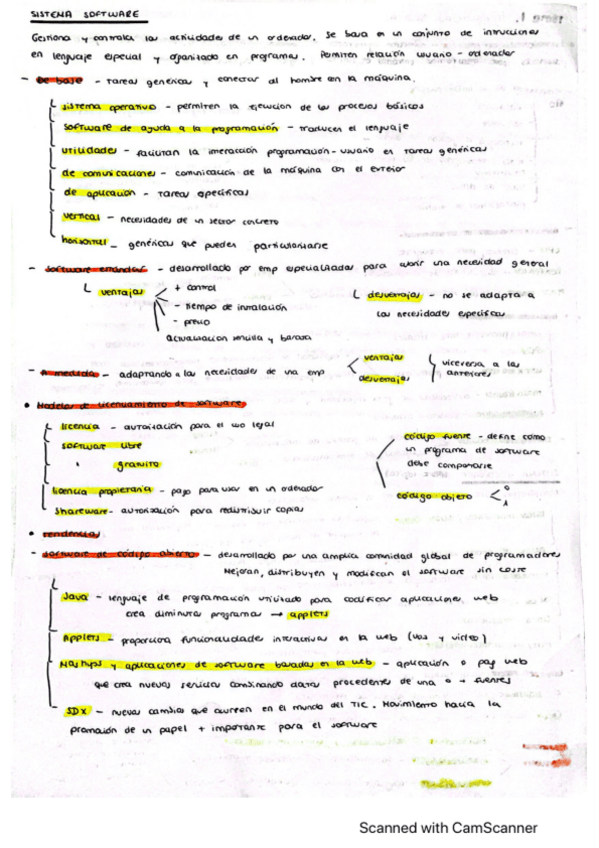 SISTEMA SOFTWARE
Gestiona y controla las actividades de un ordenador. Se basa en un conjunto de instrucciones
en lenguaje especial y organizado en programas. Permiten relación usuario - ordenador
- De base - tareas genéricas y conectar al hombre con la máquina.
sistema operativo - permiten la ejecución de los procesos básicos
software de ayuda a la programación - traducen el lenguaje
utilidades - facilitan la interacción programación-usuario en tareas genéricas
de comunicaciones - comunicación de la máquina con el exterior
de aplicación - tareas específicas
vertical - necesidades de un sector concreto
horizontal - genéricas que pueden particularizarse
- software estándar - desarrollado por emp especializadas para cubrir una necesidad general
ventajas + control
- tiempo de instalación
- precio
actualización sencilla y barata
desventajas - no se adapta a
las necesidades específicas
- A medida - adaptando a las necesidades de una emp
ventajas
desventajas
viceversa a las
anteriores
• Modelos de licenciamiento de software
licencia - autorización para el uso legal
software libre
" gratuito
licencia propietaria - pago para usar en un ordenador
Shareware - autorización para redistribuir copias
código fuente - define como
un programa de software
debe comportarse
código objeto < 0
1
• Tendencias
- software de código abierto - desarrollado por una amplia comunidad global de programadores
Mejoran, distribuyen y modifican el software sin coste
Java - lenguaje de programación utilizado para codificar aplicaciones web
crea diminutos programas → applets
Applets - proporciona funcionalidades interactivas en la web (voz y video)
Mashups y aplicaciones de software basadas en la web - aplicación o pag web
que crea nuevos servicios combinando datos procedentes de una o + fuentes
SDx - nuevos cambios que ocurren en el mundo del TIC. Movimiento hacia la
promoción de un papel + importante para el software
Scanned with CamScanner